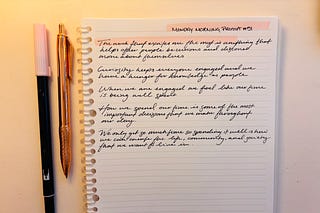 MONDAY MORNING PROMPT #31
The work that excites me the most is anything that
helps other people be curious and discover
more about themselves
Curiosity helps everyone engaged and we
have a hunger for knowledge as people
When we are engaged we feel like our time
is being well spent
How we spend our time is some of the most
important decisions that we make throughout
our day
We only get so much time so spending it well is how
we can create the life, community, and society
that we want to live in